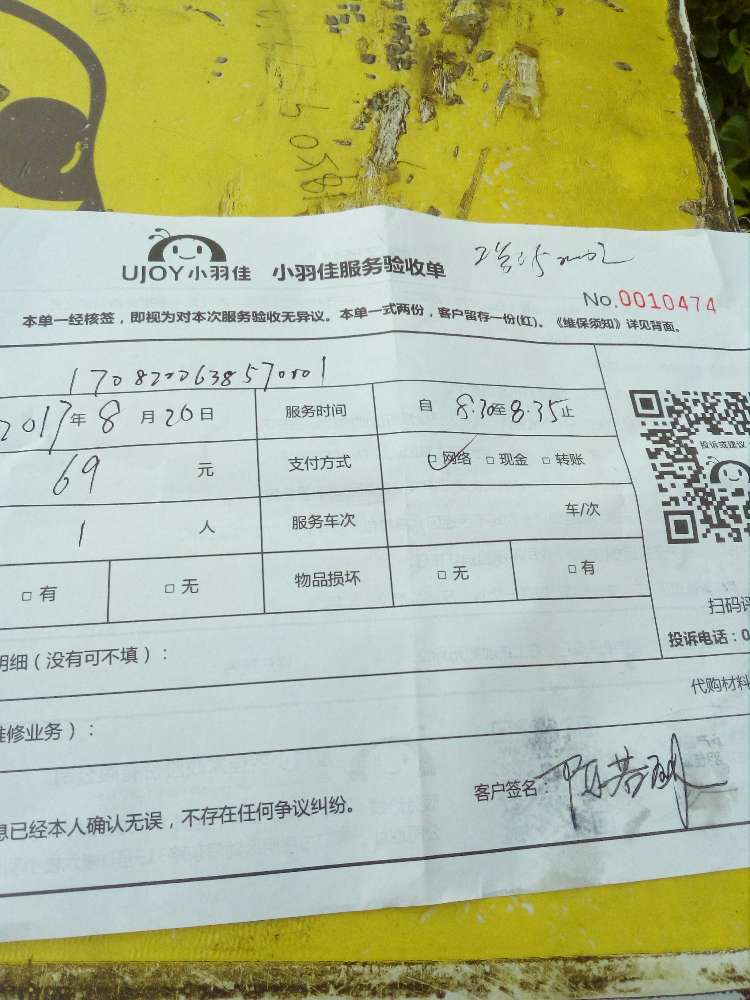 UJOY小羽佳 小羽佳服务验收单
No.0010474
本单一经核签，即视为对本次服务验收无异议。本单一式两份，客户留存一份(红)。《维保须知》详见背面。
2017年8月20日 服务时间 自8:30至8:35止
69元 支付方式 □网络 □现金 □转账
1人 服务车次 车/次
□有 □无 物品损坏 □无 □有
投诉或建议
扫码评
投诉电话：0
明细（没有可不填）：
代购材料
维修业务）：
客户签名：
息已经本人确认无误，不存在任何争议纠纷。